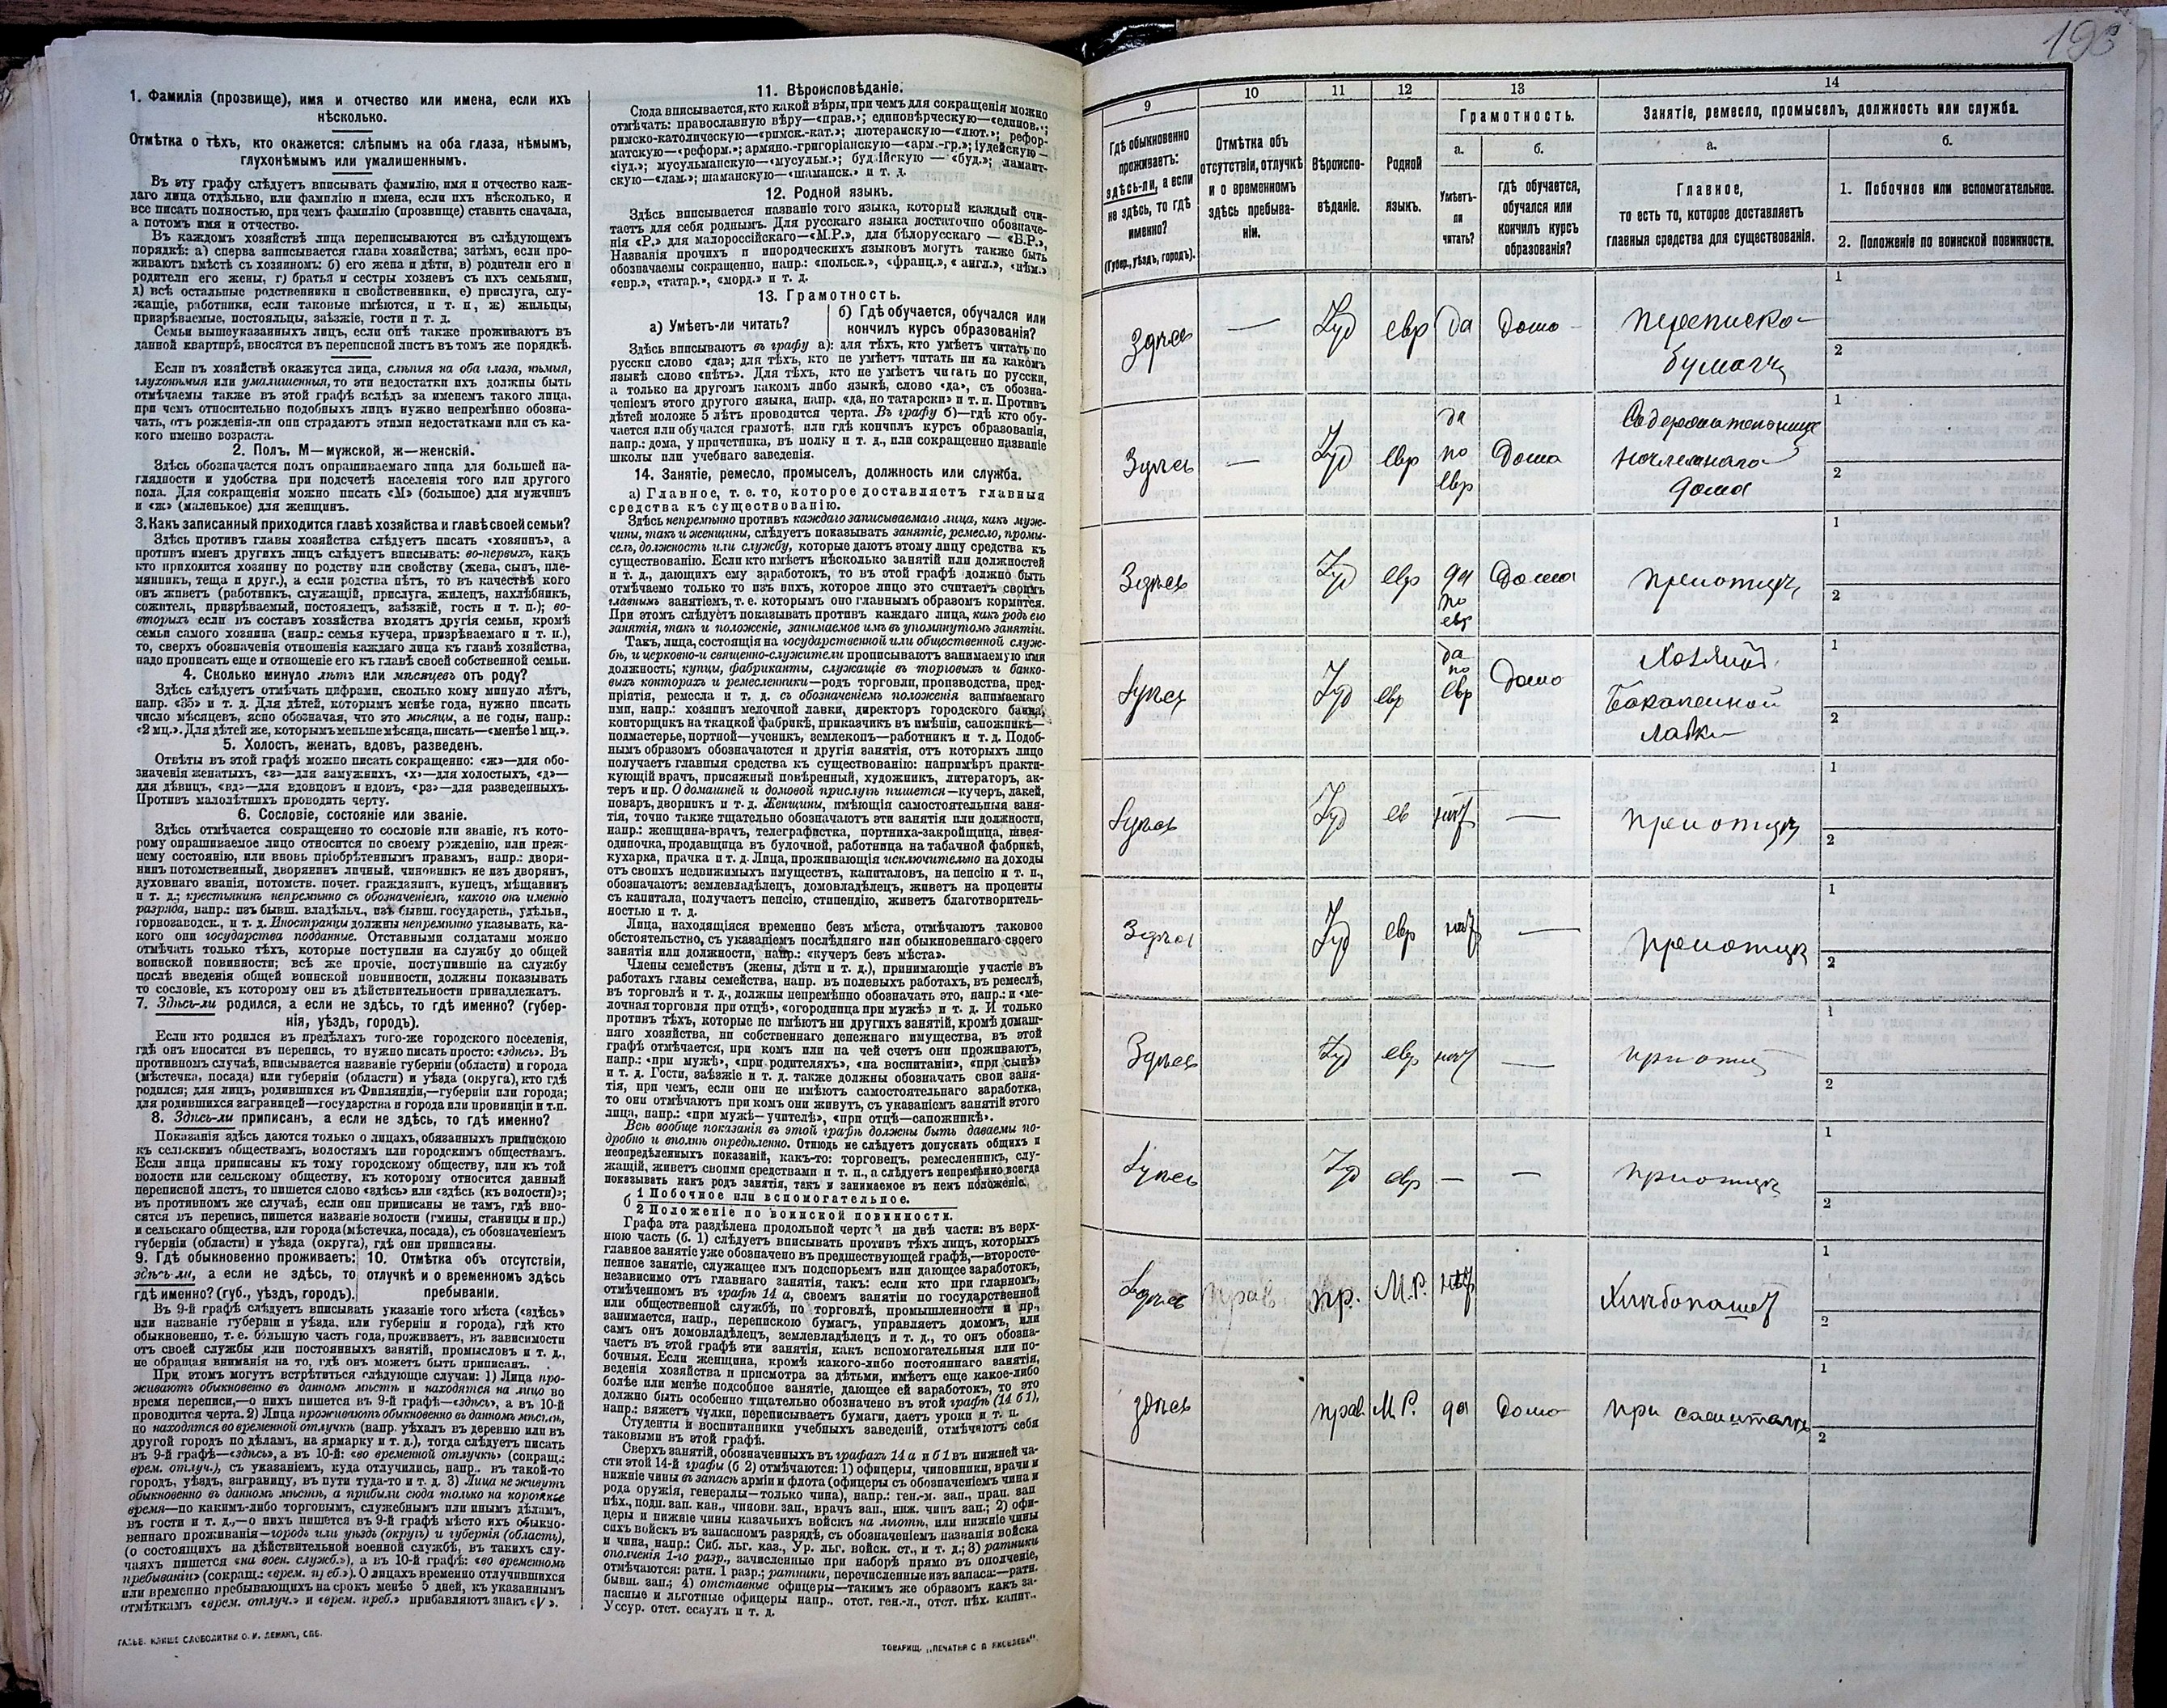 1. Фамилія (прозвище), имя и отчество или имена, если ихъ
нѣсколько.
Отмѣтка о тѣхъ, кто окажется: слѣпымъ на оба глаза, нѣмымъ,
глухонѣмымъ или умалишеннымъ.
Въ эту графу слѣдуетъ вписывать фамилію, имя и отчество каж-
даго лица отдѣльно, или фамилію и имена, если ихъ нѣсколько, и
все писать полностью, при чемъ фамилію (прозвище) ставить сначала,
а потомъ имя и отчество.
Въ каждомъ хозяйствѣ лица переписываются въ слѣдующемъ
порядкѣ: а) сперва записывается глава хозяйства; затѣмъ, если про-
живаютъ вмѣстѣ съ хозяиномъ: б) его жена и дѣти, в) родители его и
родители его жены, г) братья и сестры хозяевъ съ ихъ семьями,
д) всѣ остальные родственники и свойственники, е) прислуга, слу-
жащіе, работники, если таковые имѣются, и т. п, ж) жильцы,
призрѣваемые, постояльцы, заѣзжіе, гости и т. д.
Семьи вышеуказанныхъ лицъ, если онѣ также проживаютъ въ
данной квартирѣ, вносятся въ переписной листъ въ томъ же порядкѣ.
Если въ хозяйствѣ окажутся лица, слѣпыя на оба глаза, нѣмыя,
глухонѣмыя или умалишенныя, то эти недостатки ихъ должны быть
отмѣчаемы также въ этой графѣ вслѣдъ за именемъ такого лица,
при чемъ относительно подобныхъ лицъ нужно непремѣнно обозна-
чать, отъ рожденія-ли они страдаютъ этими недостатками или съ ка-
кого именно возраста.
2. Полъ, М—мужской, ж—женскій.
Здѣсь обозначается полъ опрашиваемаго лица для большей на-
глядности и удобства при подсчетѣ населенія того или другого
пола. Для сокращенія можно писать «М» (большое) для мужчинъ
и «ж» (маленькое) для женщинъ.
3. Какъ записанный приходится главѣ хозяйства и главѣ своей семьи?
Здѣсь противъ главы хозяйства слѣдуетъ писать «хозяинъ», а
противъ именъ другихъ лицъ слѣдуетъ вписывать: во-первыхъ, какъ
кто приходится хозяину по родству или свойству (жена, сынъ, пле-
мянникъ, теща и друг.), а если родства нѣтъ, то въ качествѣ кого
онъ живетъ (работникъ, служащій, прислуга, жилецъ, нахлѣбникъ,
сожитель, призрѣваемый, постоялецъ, заѣзжій, гость и т. п.); во-
вторыхъ если въ составъ хозяйства входятъ другія семьи, кромѣ
семьи самого хозяина (напр.: семья кучера, призрѣваемаго и т. п.),
то, сверхъ обозначенія отношенія каждаго лица къ главѣ хозяйства,
надо прописать еще и отношеніе его къ главѣ своей собственной семьи.
4. Сколько минуло лѣтъ или мѣсяцевъ отъ роду?
Здѣсь слѣдуетъ отмѣчать цифрами, сколько кому минуло лѣтъ,
напр. «35» и т. д. Для дѣтей, которымъ менѣе года, нужно писать
число мѣсяцевъ, ясно обозначая, что это мѣсяцы, а не годы, напр.:
«2 мц.». Для дѣтей же, которымъ меньше мѣсяца, писать—«менѣе 1 мц.».
5. Холостъ, женатъ, вдовъ, разведенъ.
Отвѣты въ этой графѣ можно писать сокращенно: «ж»—для обо-
значенія женатыхъ, «з»—для замужнихъ, «х»—для холостыхъ, «д»—
для дѣвицъ, «вд»—для вдовцовъ и вдовъ, «рз»—для разведенныхъ.
Противъ малолѣтнихъ проводить черту.
6. Сословіе, состояніе или званіе.
Здѣсь отмѣчается сокращенно то сословіе или званіе, къ кото-
рому опрашиваемое лицо относится по своему рожденію, или преж-
нему состоянію, или вновь пріобрѣтеннымъ правамъ, напр.: дворя-
нинъ потомственный, дворянинъ личный, чиновникъ не изъ дворянъ,
духовнаго званія, потомств. почет. гражданинъ, купецъ, мѣщанинъ
и т. д.; крестьянинъ непремѣнно съ обозначеніемъ, какого онъ именно
разряда, напр.: изъ бывш. владѣльч., изъ бывш. государств., удѣльн.,
горнозаводск., и т. д. Иностранцы должны непремѣнно указывать, ка-
кого они государства подданные. Отставными солдатами можно
отмѣчать только тѣхъ, которые поступили на службу до общей
воинской повинности; всѣ же прочіе, поступившіе на службу
послѣ введенія общей воинской повинности, должны показывать
то сословіе, къ которому они въ дѣйствительности принадлежатъ.
7. Здѣсь-ли родился, а если не здѣсь, то гдѣ именно? (губер-
нія, уѣздъ, городъ).
Если кто родился въ предѣлахъ того-же городского поселенія,
гдѣ онъ вносится въ перепись, то нужно писать просто: «здѣсь». Въ
противномъ случаѣ, вписывается названіе губерніи (области) и города
(мѣстечка, посада) или губерніи (области) и уѣзда (округа), кто гдѣ
родился; для лицъ, родившихся въ Финляндіи,—губерніи или города;
для родившихся заграницей—государства и города или провинціи и т.п.
8. Здѣсь-ли приписанъ, а если не здѣсь, то гдѣ именно?
Показанія здѣсь даются только о лицахъ, обязанныхъ припискою
къ сельскимъ обществамъ, волостямъ или городскимъ обществамъ.
Если лица приписаны къ тому городскому обществу, или къ той
волости или сельскому обществу, къ которому относится данный
переписной листъ, то пишется слово «здѣсь» или «здѣсь (къ волости)»;
въ противномъ же случаѣ, если они приписаны не тамъ, гдѣ вно-
сятся въ перепись, пишется названіе волости (гмины, станицы и пр.)
и сельскаго общества, или города (мѣстечка, посада), съ обозначеніемъ
губерніи (области) и уѣзда (округа), гдѣ они приписаны.
9. Гдѣ обыкновенно проживаетъ:
здѣсь-ли, а если не здѣсь, то
гдѣ именно? (губ., уѣздъ, городъ).
10. Отмѣтка объ отсутствіи,
отлучкѣ и о временномъ здѣсь
пребываніи.
Въ 9-й графѣ слѣдуетъ вписывать указаніе того мѣста («здѣсь»
или названіе губерніи и уѣзда, или губерніи и города), гдѣ кто
обыкновенно, т. е. бо́льшую часть года, проживаетъ, въ зависимости
отъ своей службы или постоянныхъ занятій, промысловъ и т. д.,
не обращая вниманія на то, гдѣ онъ можетъ быть приписанъ.
При этомъ могутъ встрѣтиться слѣдующіе случаи: 1) Лица про-
живаютъ обыкновенно въ данномъ мѣстѣ и находятся на лицо во
время переписи,—о нихъ пишется въ 9-й графѣ—«здѣсь», а въ 10-й
проводится черта. 2) Лица проживаютъ обыкновенно въ данномъ мѣстѣ,
но находятся во временной отлучкѣ (напр. уѣхалъ въ деревню или въ
другой городъ по дѣламъ, на ярмарку и т. д.), тогда слѣдуетъ писать
въ 9-й графѣ—«здѣсь», а въ 10-й: «во временной отлучкѣ» (сокращ.:
врем. отлуч.), съ указаніемъ, куда отлучились, напр.. въ такой-то
городъ, уѣздъ, заграницу, въ пути туда-то и т. д. 3) Лица не живутъ
обыкновенно въ данномъ мѣстѣ, а прибыли сюда только на короткое
время—по какимъ-либо торговымъ, служебнымъ или инымъ дѣламъ,
въ гости и т. д.,—о нихъ пишется въ 9-й графѣ мѣсто ихъ обыкно-
веннаго проживанія—городъ или уѣздъ (округъ) и губернія (область),
(о состоящихъ на дѣйствительной военной службѣ, въ такихъ слу-
чаяхъ пишется «на воен. служб.»), а въ 10-й графѣ: «во временномъ
пребываніи» (сокращ.: «врем. преб.»). О лицахъ временно отлучившихся
или временно пребывающихъ на срокъ менѣе 5 дней, къ указаннымъ
отмѣткамъ «врем. отлуч.» и «врем. преб.» прибавляютъ знакъ «V».
ГАЛЬВ. КЛИШЕ СЛОВОЛИТНИ О. И. ЛЕМАНЪ, СПБ.
11. Вѣроисповѣданіе.
Сюда вписывается, кто какой вѣры, при чемъ для сокращенія можно
отмѣчать: православную вѣру—«прав.»; единовѣрческую—«единов.»;
римско-католическую—«римск.-кат.»; лютеранскую—«лют.»; рефор-
матскую—«реформ.»; армяно.-григоріанскую—«арм.-гр.»; іудейскую—
«іуд.»; мусульманскую—«мусульм.»; буддійскую — «буд.»; ламаит-
скую—«лам.»; шаманскую—«шаманск.» и т. д.
12. Родной языкъ.
Здѣсь вписывается названіе того языка, который каждый счи-
таетъ для себя роднымъ. Для русскаго языка достаточно обозначе-
нія «Р.» для малороссійскаго—«М.Р.», для бѣлорусскаго — «Б.Р.»,
Названія прочихъ и инородческихъ языковъ могутъ также быть
обозначаемы сокращенно, напр.: «польск.», «франц.», « англ.», «нѣм.»
«евр.», «татар.», «морд.» и т. д.
13. Грамотность.
а) Умѣетъ-ли читать?
б) Гдѣ обучается, обучался или
кончилъ курсъ образованія?
Здѣсь вписываютъ въ графу а): для тѣхъ, кто умѣетъ читать по
русски слово «да»; для тѣхъ, кто не умѣетъ читать ни на какомъ
языкѣ слово «нѣтъ». Для тѣхъ, кто не умѣетъ читать по русски,
а только на другомъ какомъ либо языкѣ, слово «да», съ обозна-
ченіемъ этого другого языка, напр. «да, но татарски» и т. п. Противъ
дѣтей моложе 5 лѣтъ проводится черта. Въ графу б)—гдѣ кто обу-
чается или обучался грамотѣ, или гдѣ кончилъ курсъ образованія,
напр.: дома, у причетника, въ полку и т. д., или сокращенно названіе
школы или учебнаго заведенія.
14. Занятіе, ремесло, промыселъ, должность или служба.
а) Главное, т. е. то, которое доставляетъ главныя
средства къ существованію.
Здѣсь непремѣнно противъ каждаго записываемаго лица, какъ муж-
чины, такъ и женщины, слѣдуетъ показывать занятіе, ремесло, промы-
селъ, должность или службу, которые даютъ этому лицу средства къ
существованію. Если кто имѣетъ нѣсколько занятій или должностей
и т. д., дающихъ ему заработокъ, то въ этой графѣ должно быть
отмѣчаемо только то изъ нихъ, которое лицо это считаетъ своимъ
главнымъ занятіемъ, т. е. которымъ оно главнымъ образомъ кормится.
При этомъ слѣдуетъ показывать противъ каждаго лица, какъ родъ его
занятія, такъ и положеніе, занимаемое имъ въ упомянутомъ занятіи.
Такъ, лица, состоящія на государственной или общественной служ-
бѣ, и церковно-и священно-служители прописываютъ занимаемую ими
должность; купцы, фабриканты, служащіе въ торговыхъ и банко-
выхъ конторахъ и ремесленники—родъ торговли, производства, пред-
пріятія, ремесла и т. д. съ обозначеніемъ положенія занимаемаго
ими, напр.: хозяинъ мелочной лавки, директоръ городского банка,
конторщикъ на ткацкой фабрикѣ, приказчикъ въ имѣніи, сапожникъ—
подмастерье, портной—ученикъ, землекопъ—работникъ и т. д. Подоб-
нымъ образомъ обозначаются и другія занятія, отъ которыхъ лицо
получаетъ главныя средства къ существованію: напримѣръ практи-
кующій врачъ, присяжный повѣренный, художникъ, литераторъ, ак-
теръ и пр. О домашней и домовой прислугѣ пишется—кучеръ, лакей,
поваръ, дворникъ и т. д. Женщины, имѣющія самостоятельныя заня-
тія, точно также тщательно обозначаютъ эти занятія или должности,
напр.: женщина-врачъ, телеграфистка, портниха-закройщица, швея-
одиночка, продавщица въ булочной, работница на табачной фабрикѣ,
кухарка, прачка и т. д. Лица, проживающія исключительно на доходы
отъ своихъ недвижимыхъ имуществъ, капиталовъ, на пенсію и т. п.,
обозначаютъ: землевладѣлецъ, домовладѣлецъ, живетъ на проценты
съ капитала, получаетъ пенсію, стипендію, живетъ благотворитель-
ностью и т. д.
Лица, находящіяся временно безъ мѣста, отмѣчаютъ таковое
обстоятельство, съ указаніемъ послѣдняго или обыкновеннаго своего
занятія или должности, напр.: «кучеръ безъ мѣста».
Члены семействъ (жены, дѣти и т. д.), принимающіе участіе въ
работахъ главы семейства, напр. въ полевыхъ работахъ, въ ремеслѣ,
въ торговлѣ и т. д., должны непремѣнно обозначать это, напр.: и «ме-
лочная торговля при отцѣ», «огородница при мужѣ» и т. д. И только
противъ тѣхъ, которые не имѣютъ ни другихъ занятій, кромѣ домаш-
няго хозяйства, ни собственно денежнаго имущества, въ этой
графѣ отмѣчается, при комъ или на чей счетъ они проживаютъ,
напр.: «при мужѣ», «при родителяхъ», «на воспитаніи», «при сынѣ»
и т. д. Гости, заѣзжіе и т. д. также должны обозначать свои заня-
тія, при чемъ, если они не имѣютъ самостоятельнаго заработка,
то они отмѣчаютъ при комъ они живутъ, съ указаніемъ занятій этого
лица, напр.: «при мужѣ—учителѣ», «при отцѣ—сапожникѣ».
Всѣ вообще показанія въ этой графѣ должны быть даваемы по-
дробно и вполнѣ опредѣленно. Отнюдь не слѣдуетъ допускать общихъ и
неопредѣленныхъ показаній, какъ-то: торговецъ, ремесленникъ, слу-
жащій, живетъ своими средствами и т. п., а слѣдуетъ непремѣнно всегда
показывать какъ родъ занятія, такъ и занимаемое въ немъ положеніе.
б 1 Побочное или вспомогательное.
2 Положеніе по воинской повинности.
Графа эта раздѣлена продольной чертой на двѣ части: въ верх-
нюю часть (б. 1) слѣдуетъ вписывать противъ тѣхъ лицъ, которыхъ
главное занятіе уже обозначено въ предшествующей графѣ,—второсте-
пенное занятіе, служащее имъ подспорьемъ или дающее заработокъ,
независимо отъ главнаго занятія, такъ: если кто при главномъ,
отмѣченномъ въ графѣ 14 а, своемъ занятіи по государственной
или общественной службѣ, по торговлѣ, промышленности и пр.,
занимается, напр., перепискою бумагъ, управляетъ домомъ, или
самъ онъ домовладѣлецъ, землевладѣлецъ и т. д., то онъ обозна-
чаетъ въ этой графѣ эти занятія, какъ вспомогательныя или по-
бочныя. Если женщина, кромѣ какого-либо постояннаго занятія,
веденія хозяйства и присмотра за дѣтьми, имѣетъ еще какое-либо
болѣе или менѣе подсобное занятіе, дающее ей заработокъ, то это
должно быть особенно тщательно обозначено въ этой графѣ (14 б 1),
напр.: вяжетъ чулки, переписываетъ бумаги, даетъ уроки и т. п.
Студенты и воспитанники учебныхъ заведеній, отмѣчаютъ себя
таковыми въ этой графѣ.
Сверхъ занятій, обозначенныхъ въ графахъ 14 а и б 1 въ нижней ча-
сти этой 14-й графы (б 2) отмѣчаются: 1) офицеры, чиновники, врачи и
нижніе чины въ запасѣ арміи и флота (офицеры съ обозначеніемъ чина и
рода оружія, генералы—только чина), напр.: ген.-м. зап., прап. зап
пѣх., подп. зап. кав., чиновн. зап., врачъ зап., ниж. чинъ зап.; 2) офи-
церы и нижніе чины казачьихъ войскъ на льготѣ, или нижніе чины
сихъ войскъ въ запасномъ разрядѣ, съ обозначеніемъ названія войска
и чина, напр.: Сиб. льг. каз., Ур. льг. войск. ст., и т. д.; 3) ратники
ополченія 1-го разр., зачисленные при наборѣ прямо въ ополченіе,
отмѣчаются: ратн. 1 разр.; ратники, перечисленные изъ запаса:—ратн.
бывш. зап.; 4) отставные офицеры—такимъ же образомъ какъ за-
пасные и льготные офицеры напр.. отст. ген.-л., отст. пѣх. капит.,
Уссур. отст. есаулъ и т. д.
ТОВАРИЩ. „ПЕЧАТНЯ С. П. ЯКОВЛЕВА“.
193
9 10 11 12 13 14
Гдѣ обыкновенно
проживаетъ:
здѣсь-ли, а если
не здѣсь, то гдѣ
именно?
(Губер., уѣздъ, городъ).
Отмѣтка объ
отсутствіи, отлучкѣ
и о временномъ
здѣсь пребыва-
ніи.
Вѣроиспо-
вѣданіе.
Родной
языкъ.
Грамотность.
а.
Умѣетъ-
ли
читать?
б.
гдѣ обучается,
обучался или
кончилъ курсъ
образованія?
Занятіе, ремесло, промыселъ, должность или служба.
а.
Главное,
то есть то, которое доставляетъ
главныя средства для существованія.
б.
1. Побочное или вспомогательное.
2. Положеніе по воинской повинности.
Здѣсь — Іуд евр да Дома переписка
бумагъ
1
2
Здѣсь — Іуд евр да
по
евр Дома Содержательница
дома
1
2
Здѣсь Іуд евр да
по
евр Дома при отцѣ
1
2
Здѣсь Іуд евр да
по
евр Дома Хозяинъ
Бакалейной
лавки
1
2
Здѣсь Іуд ев нѣт — при отцѣ
1
2
Здѣсь Іуд евр нѣт — при отцѣ
1
2
Здѣсь Іуд евр нѣт — при отцѣ
1
2
Здѣсь Іуд евр — — при отцѣ
1
2
Здѣсь прав. пр. М.Р. нѣт Хлѣбопашец
1
2
здѣсь прав. М.Р. да Дома при
1
2